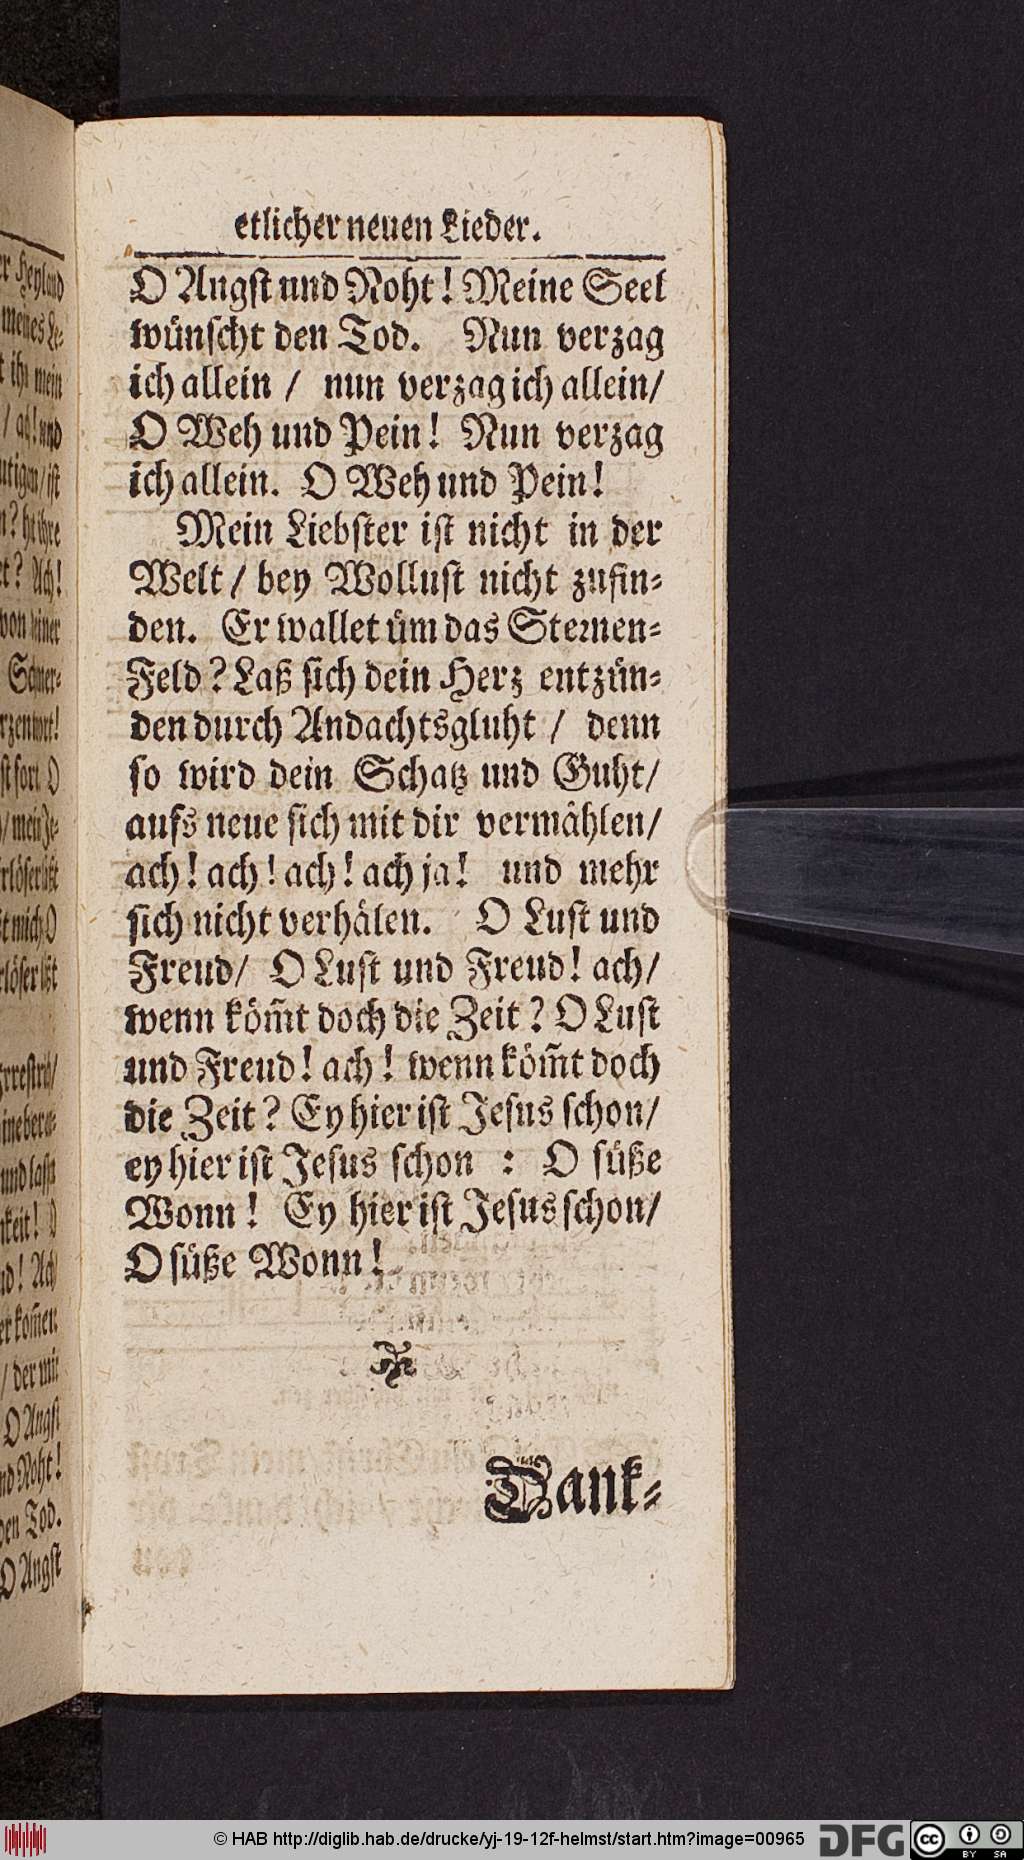 etlicher neuen Lieder.
O Angst und Noht! Meine Seel
wünscht den Tod. Nun verzag
ich allein / nun verzag ich allein/
O Weh und Pein! Nun verzag
ich allein. O Weh und Pein!
Mein Liebster ist nicht in der
Welt / bey Wollust nicht zufin-
den. Er wallet üm das Sternen-
Feld? Laß sich dein Herz entzün-
den durch Andachtsgluht / denn
so wird dein Schatz und Guht/
aufs neue sich mit dir vermählen/
ach! ach! ach! ach ja! und mehr
sich nicht verhälen. O Lust und
Freud/ O Lust und Freud! ach/
wenn köm̃t doch die Zeit? O Lust
und Freud! ach! wenn köm̃t doch
die Zeit? Ey hier ist Jesus schon/
ey hier ist Jesus schon : O süße
Wonn! Ey hier ist Jesus schon/
O süße Wonn!
Dank-
© HAB http://diglib.hab.de/drucke/yj-19-12f-helmst/start.htm?image=00965
DFG
cc BY SA